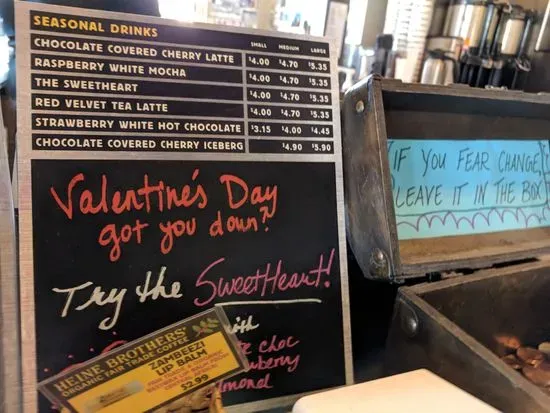 SEASONAL DRINKS SMALL MEDIUM LARGE
CHOCOLATE COVERED CHERRY LATTE $4.00 $4.70 $5.35
RASPBERRY WHITE MOCHA $4.00 $4.70 $5.35
THE SWEETHEART $4.00 $4.70 $5.35
RED VELVET TEA LATTE $4.00 $4.70 $5.35
STRAWBERRY WHITE HOT CHOCOLATE $3.15 $4.00 $4.45
CHOCOLATE COVERED CHERRY ICEBERG $4.90 $5.90
Valentine's Day
got you down?
Try the SweetHeart!
with
choc
lmond
HEINE BROTHERS'
ORGANIC FAIR TRADE COFFEE
ZAMBEEZI
LIP BALM
$2.99
IF YOU FEAR CHANGE
LEAVE IT IN THE BOX